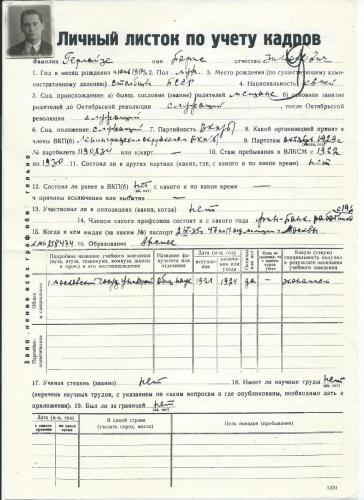 Личный листок по учету кадров
Фамилия имя Борис отчество
1. Год и месяц рождения 2. Пол муж. 3. Место рождения (по существующему адми-
нистративному делению) БССР 4. Национальность еврей
5. Соц. происхождение: а) бывш. сословие (звание) родителей мещане б) основное занятие
родителей до Октябрьской революции служащий, после Октябрьской
революции служащий
6. Соц. положение служащий 7. Партийность ВКП(б) 8. Какой организацией принят
в члены ВКП(б) 9. Партстаж октябрь 1929 г.
№ партбилета 1190834 или к/карт. — 10. Стаж пребывания в ВЛКСМ с 1922
по 1930 11. Состоял ли в других партиях (каких, где, с какого и по какое время) нет
12. Состоял ли ранее в ВКП(б) нет с какого и по какое время —
и причины исключения или выбытия —
13. Участвовал ли в оппозициях (каких, когда) нет
14. Членом какого профсоюза состоит и с какого года
15. Когда и кем выдан (за каким №) паспорт Москвы
16. Образование высшее
Заполнение всех граф обязательно
Подробно название учебного заведения (вуза, втуза, техникума, комвуза, школы и проч.) и его местонахождение
Название факультета или отделения
Дата (м-ц, год)
поступления
окончания или ухода
Окончил или нет
Если не окончил, то с какого курса ушел
Какую (узкую) специальность получил в результате окончания учебного заведения
Общее и специальное
Московский Госуд. Университет общ. наук 1921 1924 да — экономист
Партийно-политическое
17. Ученая степень (звание) нет 18. Имеет ли научные труды нет
(перечень научных трудов, с указанием по каким вопросам и где опубликованы, необходимо дать в
приложении). 19. Был ли за границей нет
Дата (м-ц, год)
с какого времени
по какое время
В какой стране (указать город, место)
Цель поездки (пребывания)